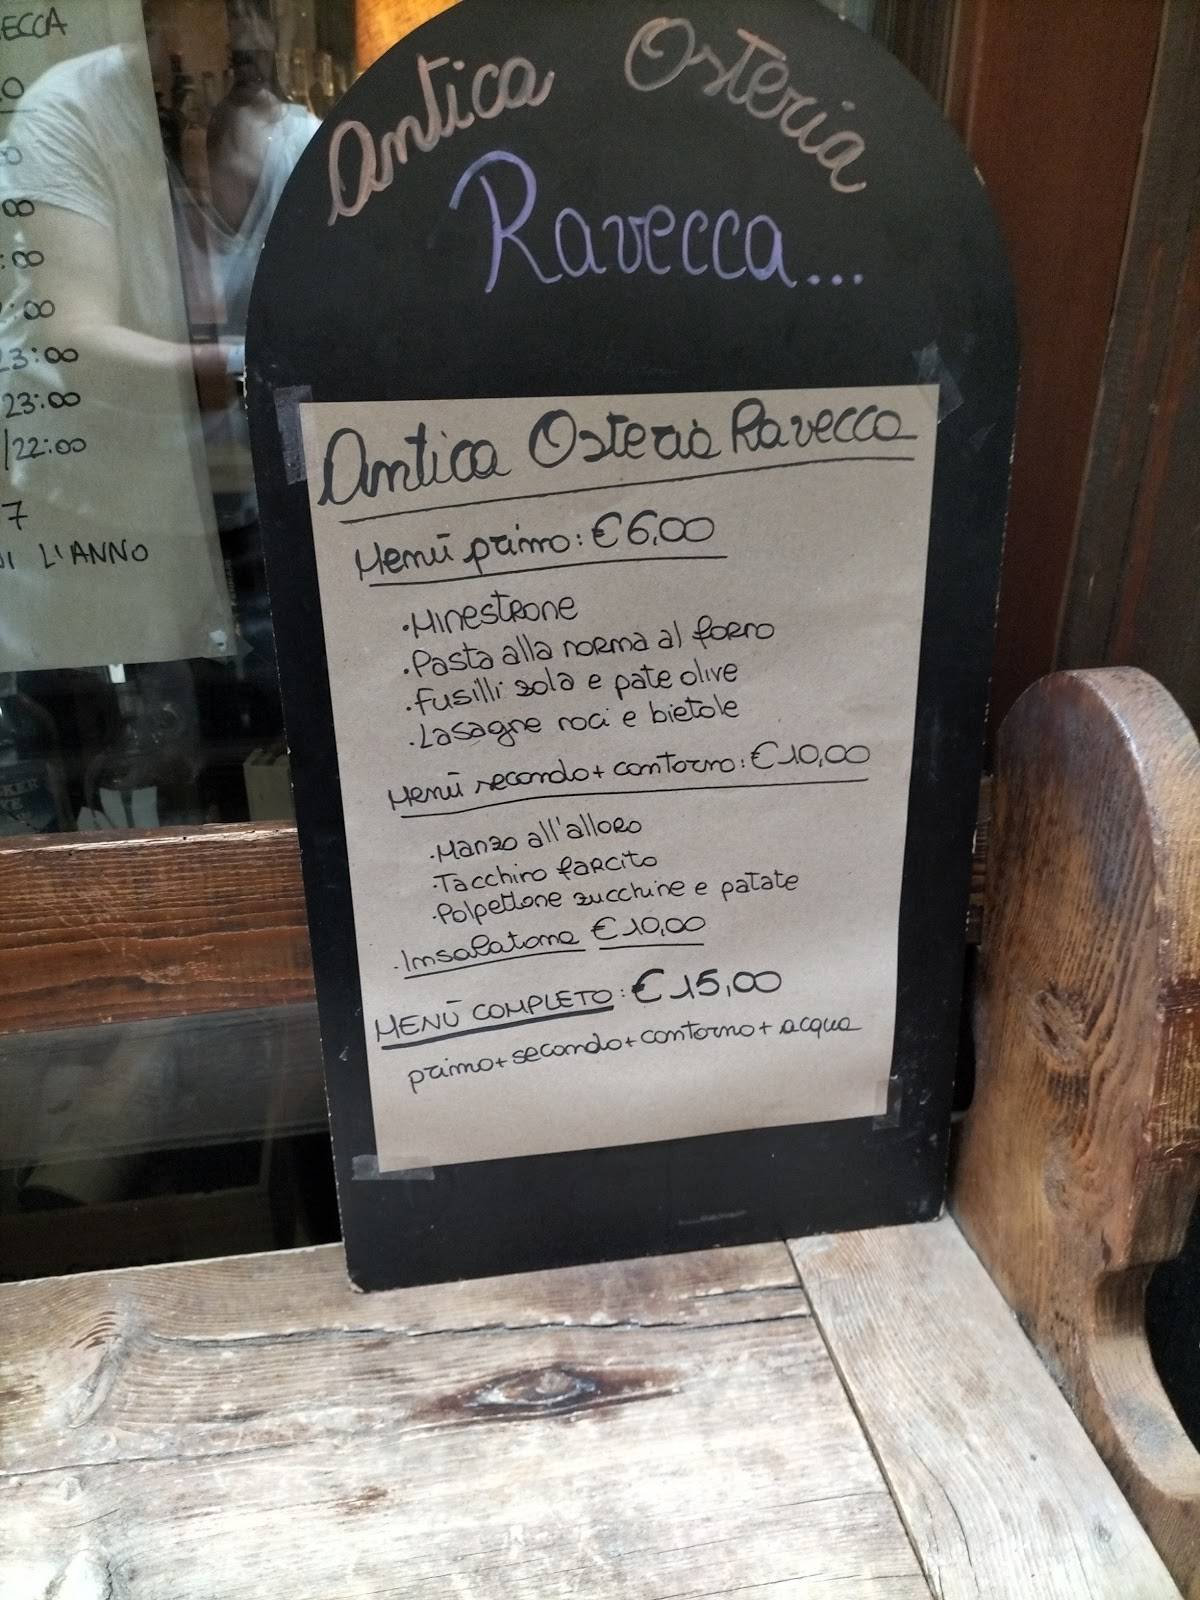 Antica Osteria
Ravecca...
Antica Osteria Ravecca
Menù primo: €6,00
·Minestrone
·Pasta alla norma al forno
·Fusilli zola e pate olive
·Lasagne noci e bietole
Menù secondo + contorno: €10,00
·Manzo all'alloro
·Tacchino farcito
·Polpettone zucchine e patate
·Insalatona €10,00
MENÙ COMPLETO: €15,00
primo+secondo+contorno+acqua
ECCA
:00
:00
23:00
23:00
/22:00
7
L'ANNO